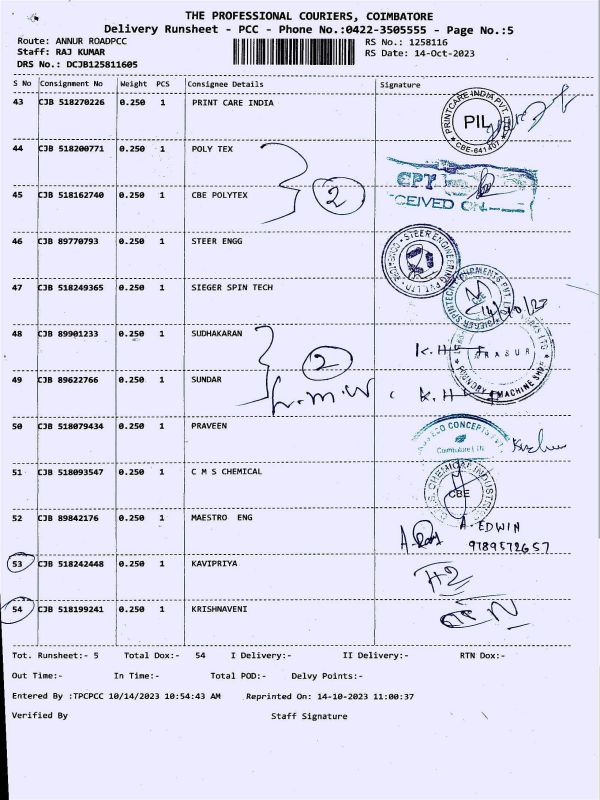 THE PROFESSIONAL COURIERS, COIMBATORE
Delivery Runsheet - PCC - Phone No.:0422-3505555 - Page No.:5
Route: ANNUR ROADPCC RS No.: 1258116
Staff: RAJ KUMAR RS Date: 14-Oct-2023
DRS No.: DCJB125811605
S No Consignment No Weight PCS Consignee Details Signature
43 CJB 518270226 0.250 1 PRINT CARE INDIA
PRINTCARE INDIA PVT. PIL CBE-641407
44 CJB 518200771 0.250 1 POLY TEX
CPT
2
45 CJB 518162740 0.250 1 CBE POLYTEX
CEIVED ON
46 CJB 89770793 0.250 1 STEER ENGG
STEER ENGINEERING PVT. LTD
47 CJB 518249365 0.250 1 SIEGER SPIN TECH
48 CJB 89901233 0.250 1 SUDHAKARAN
2
K.H
ARASUR
49 CJB 89622766 0.250 1 SUNDAR
L.M.W
K.H
FOUNDRY & MACHINE SHOP
50 CJB 518079434 0.250 1 PRAVEEN
ECO CONCEPTS
Coimbatore
51 CJB 518093547 0.250 1 C M S CHEMICAL
CHEMICAL INDUSTRIES CBE
52 CJB 89842176 0.250 1 MAESTRO ENG
A. EDWIN
9789572657
53 CJB 518242448 0.250 1 KAVIPRIYA
54 CJB 518199241 0.250 1 KRISHNAVENI
Tot. Runsheet:- 5 Total Dox:- 54 I Delivery:- II Delivery:- RTN Dox:-
Out Time:- In Time:- Total POD:- Delvy Points:-
Entered By :TPCPCC 10/14/2023 10:54:43 AM Reprinted On: 14-10-2023 11:00:37
Verified By Staff Signature